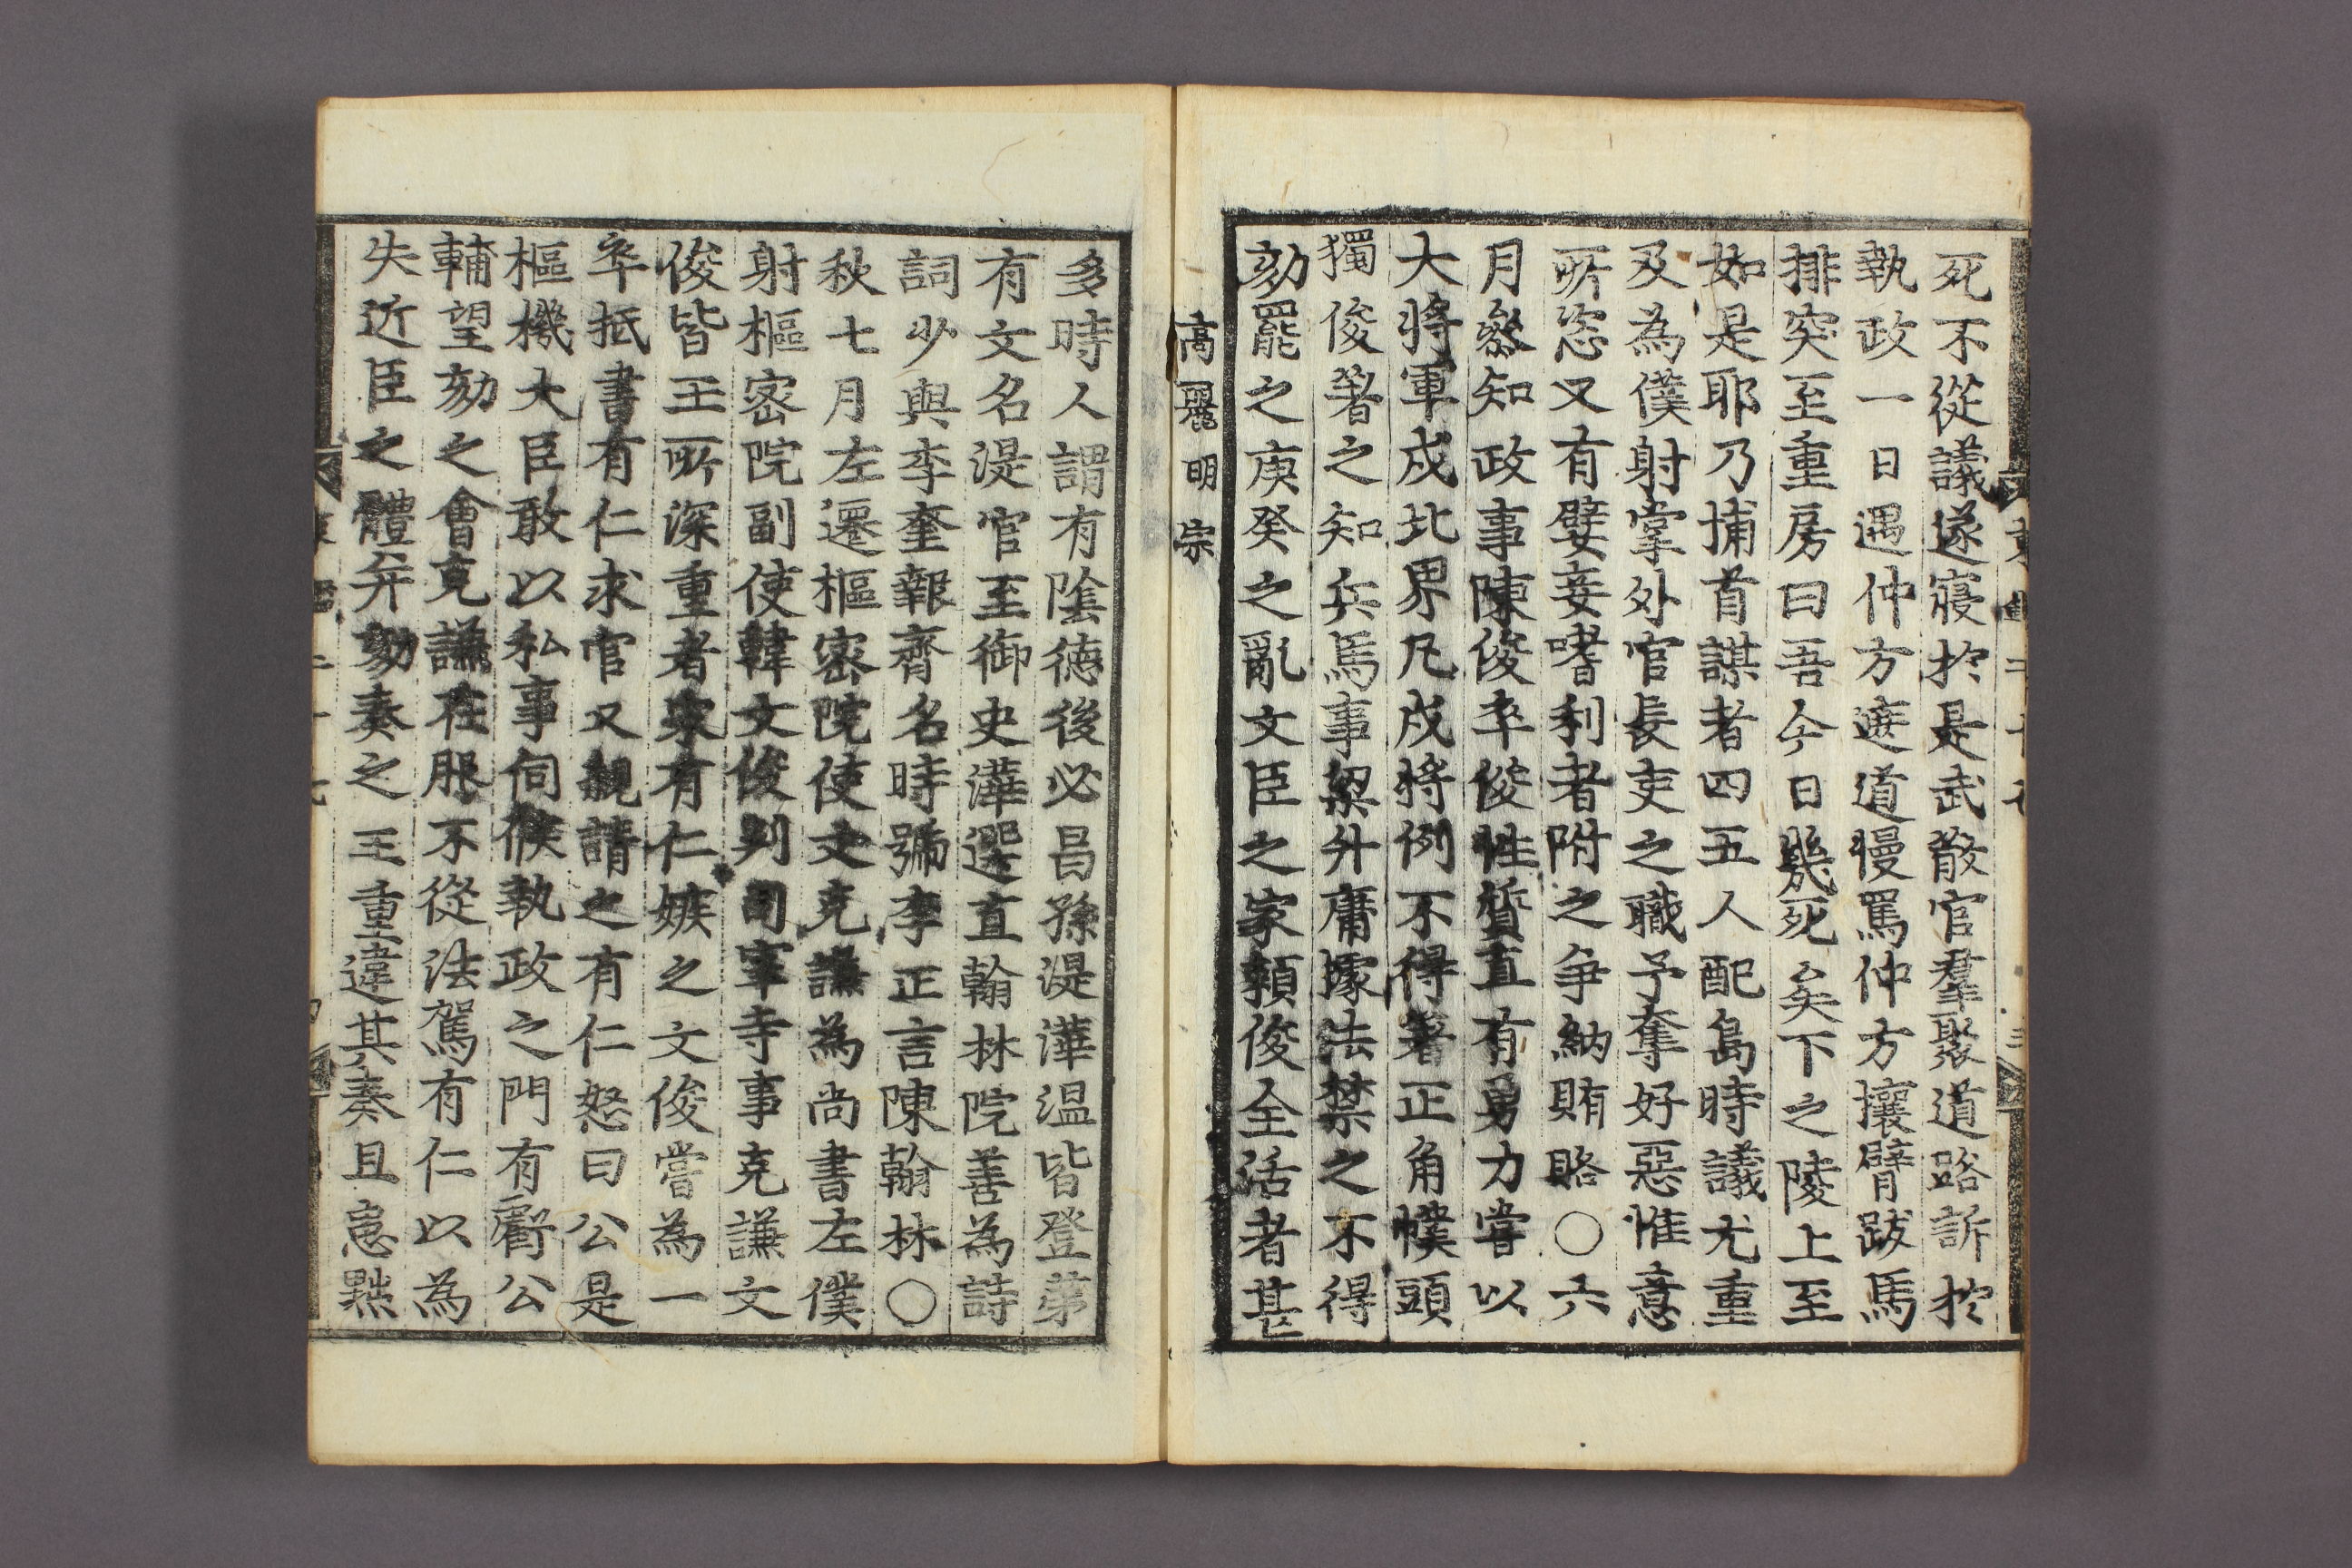 死不從議遂寢於是武散官羣聚道路訴於
執政一日遇仲方遮道慢罵仲方攘臂跋馬
排突至重房曰吾今日幾死矣下之陵上至
如是耶乃捕首謀者四五人配島時議尤重
及為僕射掌外官長吏之職予奪好惡惟意
所恣又有嬖妾嗜利者附之争納賄賂○六
月叅知政事陳俊卒俊性質直有勇力嘗以
大將軍戍北界凡戍將例不得著正角幞頭
獨俊著之知兵馬事梁升庸據法禁之不得
劾罷之庚癸之亂文臣之家賴俊全活者甚
高麗明宗
多時人謂有陰德後必昌孫湜澕温皆登第
有文名湜官至御史澕選直翰林院善為詩
詞少與李奎報齊名時號李正言陳翰林○
秋七月左遷樞密院使文克謙為尚書左僕
射樞密院副使韓文俊判司宰寺事克謙文
俊皆王所深重者宋有仁嫉之文俊嘗為一
卒抵書有仁求官又親請之有仁怒曰公是
樞機大臣敢以私事伺候執政之門有虧公
輔望劾之會克謙在服不從法駕有仁以為
失近臣之體并劾奏之王重違其奏且急黜